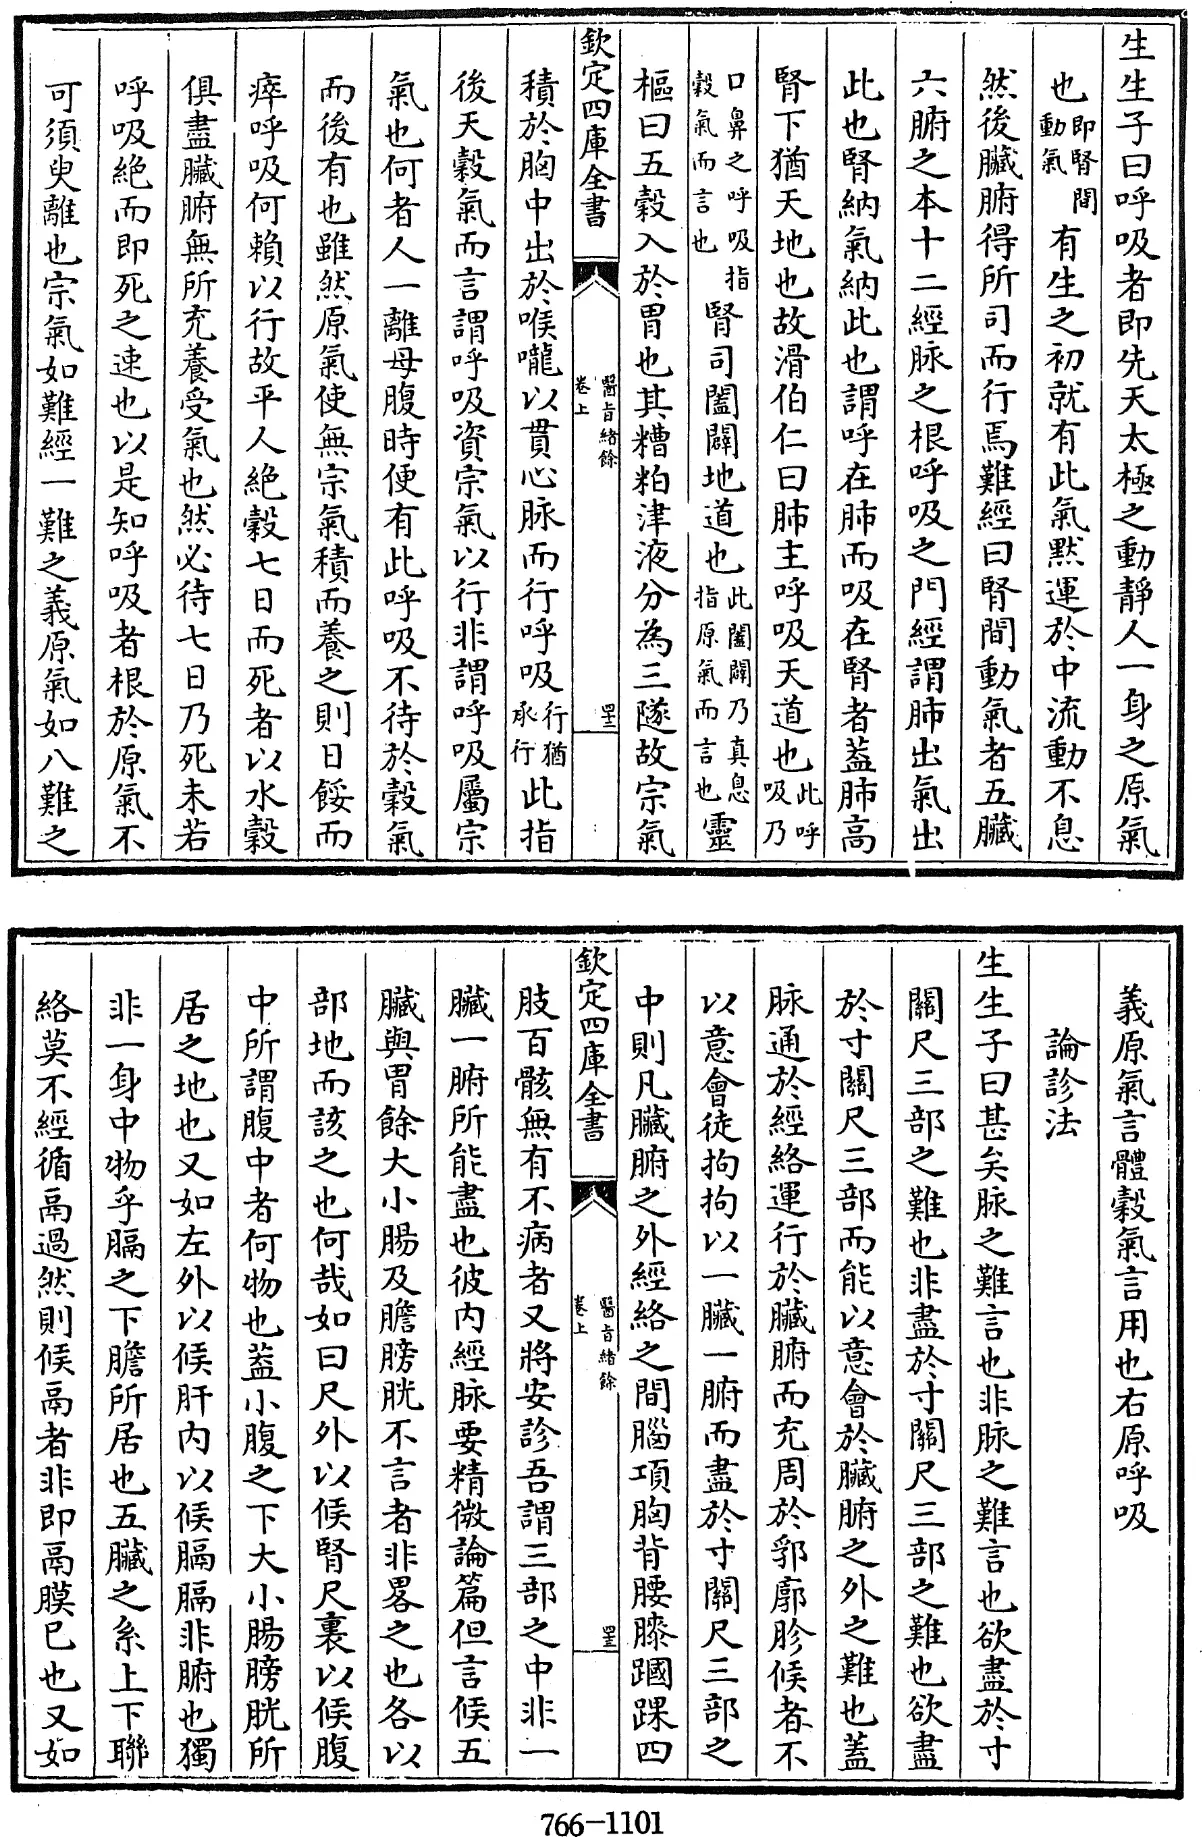 生生子曰呼吸者即先天太極之動靜人一身之原氣
也即腎間動氣有生之初就有此氣默運於中流動不息
然後臟腑得所司而行焉難經曰腎間動氣者五臟
六腑之本十二經脉之根呼吸之門經謂肺出氣出
此也腎納氣納此也謂呼在肺而吸在腎者蓋肺高
腎下猶天地也故滑伯仁曰肺主呼吸天道也此呼吸乃
口鼻之呼吸指穀氣而言也腎司闔闢地道也此闔闢乃真息指原氣而言也靈
樞曰五穀入於胃也其糟粕津液分為三隧故宗氣
欽定四庫全書
醫旨緒餘
卷上
積於胸中出於喉嚨以貫心脉而行呼吸行猶承行此指
後天穀氣而言謂呼吸資宗氣以行非謂呼吸屬宗
氣也何者人一離母腹時便有此呼吸不待於穀氣
而後有也雖然原氣使無宗氣積而養之則日餒而
瘁呼吸何賴以行故平人絶穀七日而死者以水穀
俱盡臟腑無所充養受氣也然必待七日乃死未若
呼吸絶而即死之速也以是知呼吸者根於原氣不
可須臾離也宗氣如難經一難之義原氣如八難之
義原氣言體穀氣言用也右原呼吸
論診法
生生子曰甚矣脉之難言也非脉之難言也欲盡於寸
關尺三部之難也非盡於寸關尺三部之難也欲盡
於寸關尺三部而能以意會於臟腑之外之難也蓋
脉通於經絡運行於臟腑而充周於郛廓胗候者不
以意會徒拘拘以一臟一腑而盡於寸關尺三部之
中則凡臟腑之外經絡之間腦項胸背腰膝蹦踝四
欽定四庫全書
醫旨緒餘
卷上
肢百骸無有不病者又將安診吾謂三部之中非一
臟一腑所能盡也彼內經脉要精微論篇但言候五
臟與胃餘大小腸及膽膀胱不言者非畧之也各以
部地而該之也何哉如曰尺外以候腎尺裏以候腹
中所謂腹中者何物也蓋小腹之下大小腸膀胱所
居之地也又如左外以候肝內以候膈膈非腑也獨
非一身中物乎膈之下膽所居也五臟之系上下聯
絡莫不經循鬲過然則候鬲者非即鬲膜已也又如
766-1101